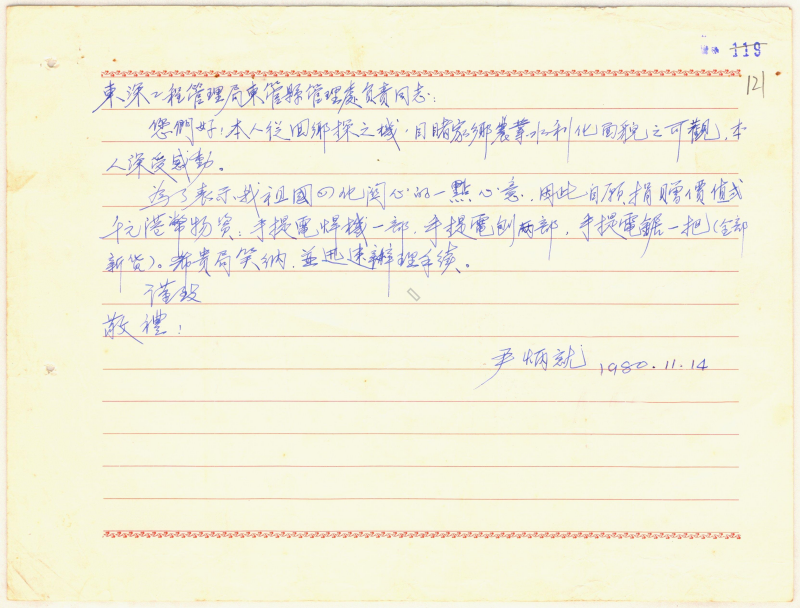 119
121
東深工程管理局東管縣管理處负责同志：
您們好！本人從回鄉探之機，目睹家鄉農業水利化面貌之可觀，本
人深受感動。
為了表示我祖國四化関心的一點心意，因此自願捐贈價值弍
千元港幣物资：手提電焊機一部，手提電刨両部，手提電鋸一把（全部
新货）。希贵局笑納，並迅速辦理手续。
谨致
敬禮！
尹炳就 1980.11.14